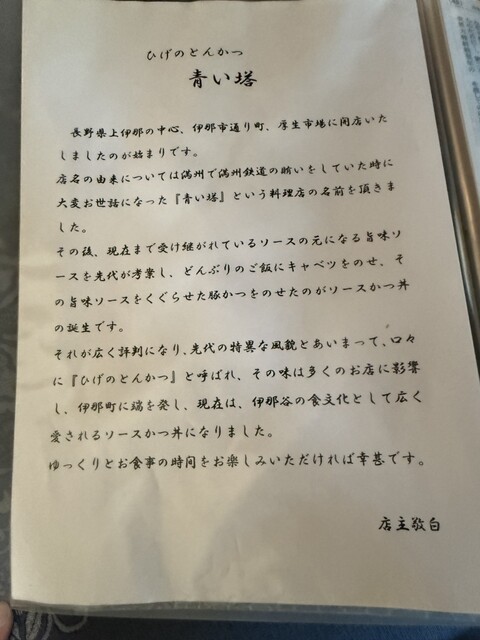 ひげのとんかつ
青い塔
長野県上伊那の中心、伊那市通り町、厚生市場に開店いた
しましたのが始まりです。
店名の由来については満州で満州鉄道の賄いをしていた時に
大変お世話になった『青い塔』という料理店の名前を頂きま
した。
その後、現在まで受け継がれているソースの元になる旨味ソ
ースを先代が考案し、どんぶりのご飯にキャベツをのせ、そ
の旨味ソースをくぐらせた豚かつをのせたのがソースかつ丼
の誕生です。
それが広く評判になり、先代の特異な風貌とあいまって、口々
に『ひげのとんかつ』と呼ばれ、その味は多くのお店に影響
し、伊那町に端を発し、現在は、伊那谷の食文化として広く
愛されるソースかつ丼になりました。
ゆっくりとお食事の時間をお楽しみいただければ幸甚です。
店主敬白